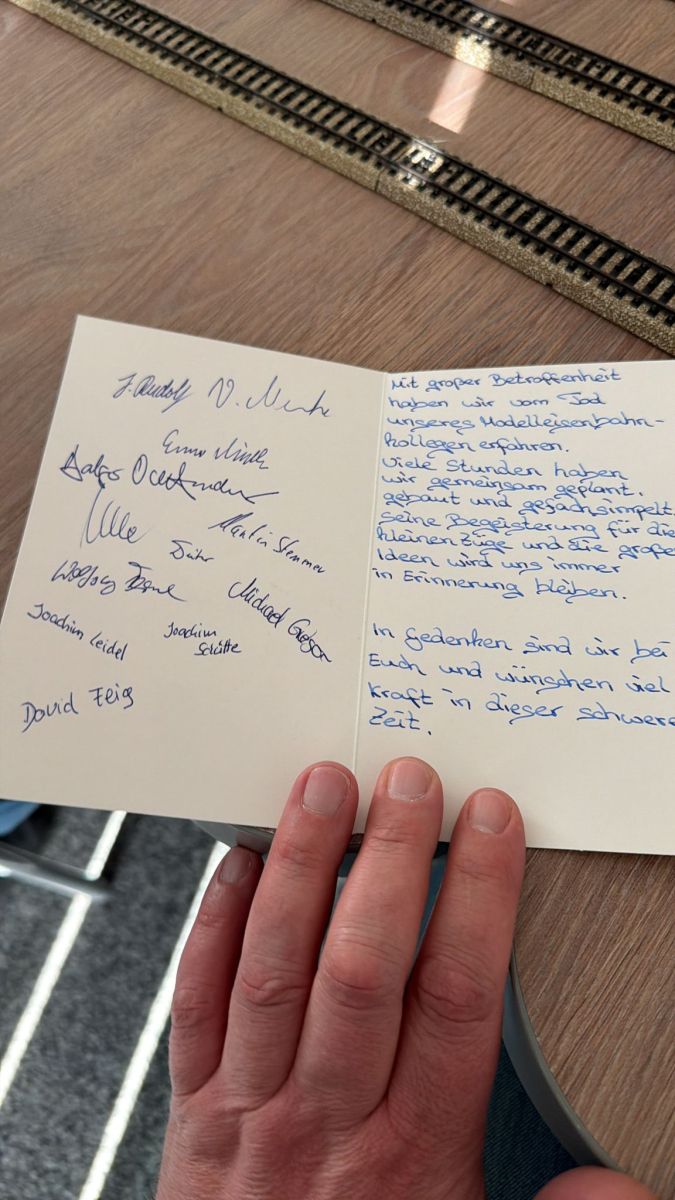 J. Rudolf
Martin Stemmer
Michael
Joachim Leidel
Joachim
Schütte
David Feig
Mit großer Betroffenheit
haben wir vom Tod
unseres Modelleisenbahn-
kollegen erfahren.
Viele Stunden haben
wir gemeinsam geplant,
gebaut und gefachsimpelt.
Seine Begeisterung für die
kleinen Züge und die große
Ideen wird uns immer
in Erinnerung bleiben.
In Gedenken sind wir bei
Euch und wünschen viel
Kraft in dieser schwere
Zeit.